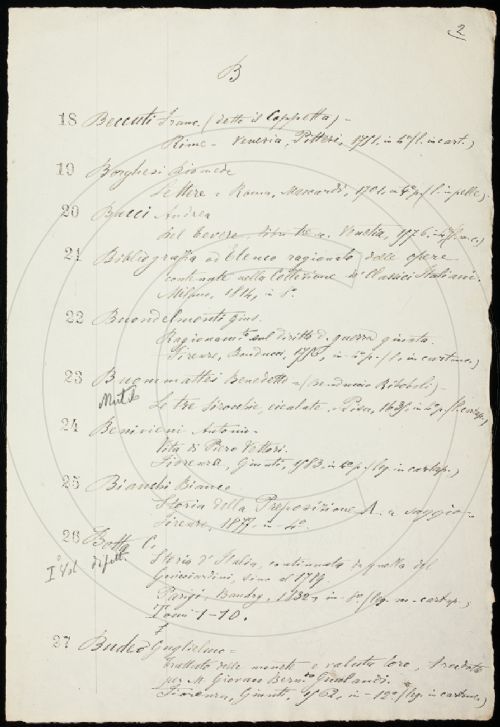 2
B
18 Beccuti Franc. (detto il Coppetta) -
Rime - Venezia, Pitteri, 1751, in 4º (l. in cart.)
19 Borghesi Diomede
Lettere - Roma, 1701, in 4º p. (l. in pelle)
20 Bacci Andrea
Del Tevere, libro - Venezia, 1576, in 4º
21 Bibliografia od Elenco ragionato delle opere
contenute nella Collezione de' Classici Italiani.
Milano, 1814, in 8º.
22 Buondelmonti Gius.
Ragionamto sul diritto d. guerra giusta.
Firenze, Bonducci, in 4º p. (l. in cartonc.)
23 Buommattei Benedetto
Mutilo
Le tre Sirocchie, cicalate - Pisa, 1635, in 4º p. (l. cartap.)
24 Benivieni Antonio -
Vita di Piero Vettori.
Fiorenza, Giunti, 1583, in 4º p. (leg. in cartap.)
25 Bianchi Bianco
Storia della Preposizione A. - Saggio -
Firenze, 1877, in 4º.
26 Botta C.
Iº Vol difett.
Storia d'Italia, continuata da quella del
Guicciardini, sino al 1789.
Parigi, Baudry, 1832, in 8º (leg. in cartap.)
Tomi 1-10.
27 Budeo Guglielmo -
Trattato delle monete e valuta loro, tradotto
per M. Giovan Bern.do Gualandi.
Fiorenza, Giunti, 1562, in - 12º (leg. in cartonc.)